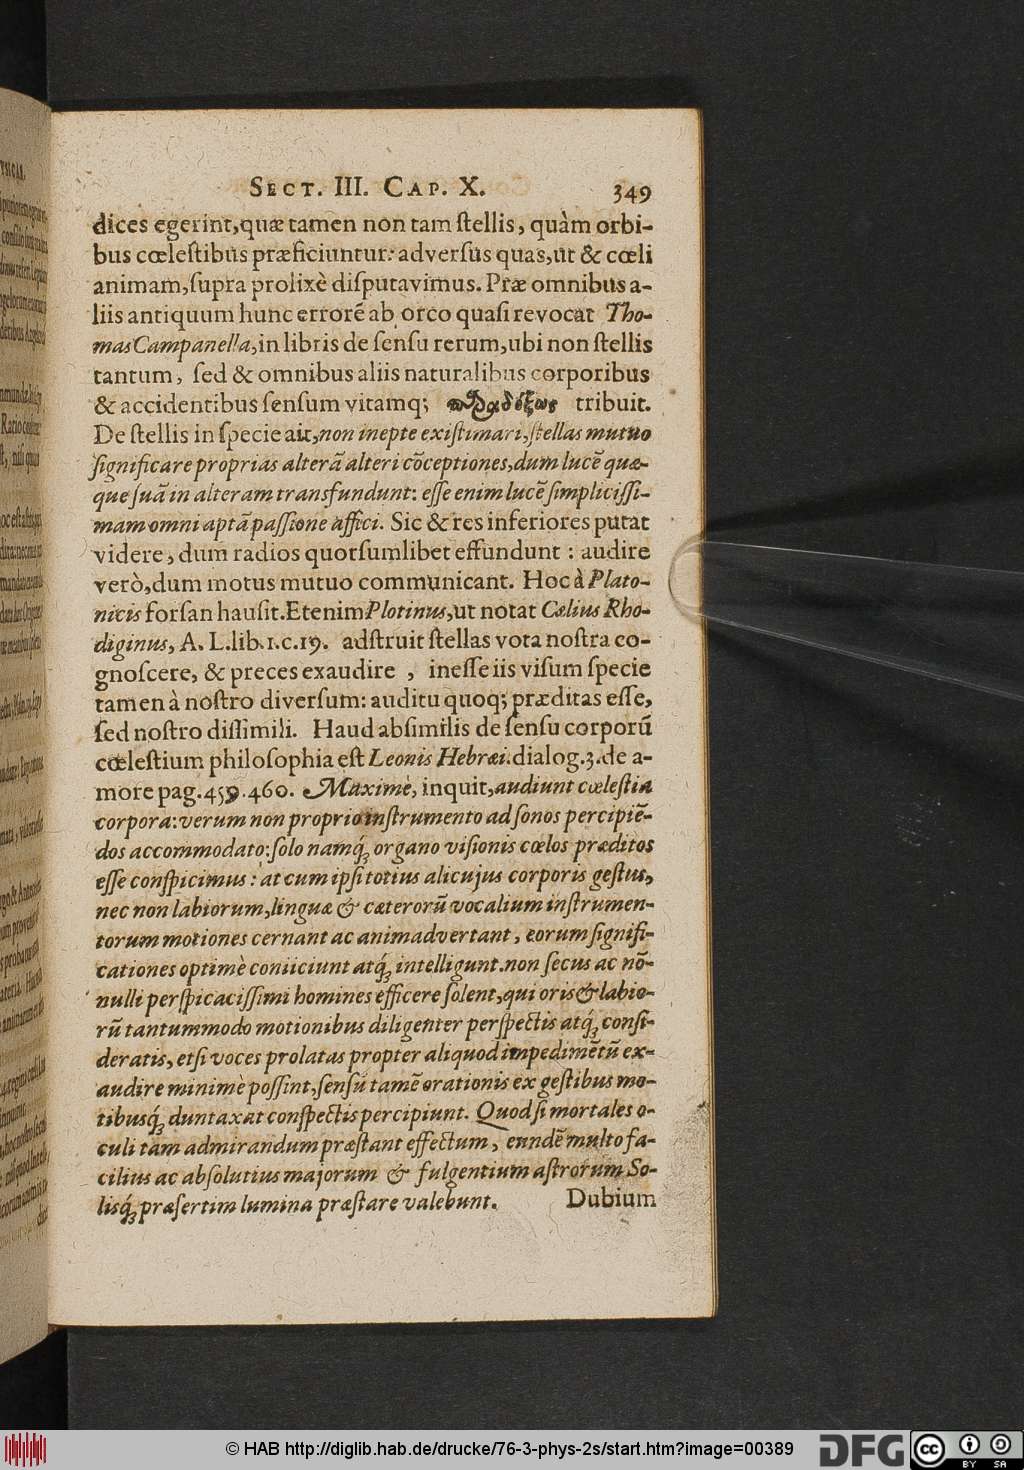 SECT. III. CAP. X. 349
dices egerint, quæ tamen non tam ſtellis, quàm orbi-
bus cœleſtibus præficiuntur: adverſus quas, ut & cœli
animam, ſupra prolixè diſputavimus. Præ omnibus a-
liis antiquum hunc errorẽ ab orco quaſi revocat Tho-
mas Campanella, in libris de ſenſu rerum, ubi non ſtellis
tantum, ſed & omnibus aliis naturalibus corporibus
& accidentibus ſenſum vitamq; παραδόξως tribuit.
De ſtellis in ſpecie ait, non inepte exiſtimari, ſtellas mutuo
ſignificare proprias alterã alteri cõceptiones, dum lucẽ quæ-
que ſuã in alteram transfundunt: eſſe enim lucẽ ſimpliciſſi-
mam omni aptã paſſione affici. Sic & res inferiores putat
videre, dum radios quorſumlibet effundunt : audire
verò, dum motus mutuo communicant. Hoc à Plato-
nicis forſan hauſit. Etenim Plotinus, ut notat Cælius Rho-
diginus, A. L. lib. 1. c. 19. adſtruit ſtellas vota noſtra co-
gnoſcere, & preces exaudire , ineſſe iis viſum ſpecie
tamen à noſtro diverſum: auditu quoq; præditas eſſe,
ſed noſtro diſſimili. Haud abſimilis de ſenſu corporũ
cœleſtium philoſophia eſt Leonis Hebræi. dialog. 3. de a-
more pag. 459. 460. Maximè, inquit, audiunt cœleſtia
corpora: verum non proprio inſtrumento ad ſonos percipiẽ-
dos accommodato: ſolo namq́; organo viſionis cœlos præditos
eſſe conſpicimus: at cum ipſi totius alicujus corporis geſtus,
nec non labiorum, linguæ & cæterorũ vocalium inſtrumen-
torum motiones cernant ac animadvertant, eorum ſignifi-
cationes optimè coniiciunt atq́; intelligunt. non ſecus ac nõ-
nulli perſpicaciſſimi homines efficere ſolent, qui oris & labio-
rũ tantummodo motionibus diligenter perſpectis atq́; conſi-
deratis, etſi voces prolatas propter aliquod impedimẽtũ ex-
audire minimè poſſint, ſenſũ tamẽ orationis ex geſtibus mo-
tibusq́; duntaxat conſpectis percipiunt. Quod ſi mortales o-
culi tam admirandum præſtant effectum, eundẽ multo fa-
cilius ac abſolutius majorum & fulgentium aſtrorum So-
lisq́; præſertim lumina præſtare valebunt. Dubium
© HAB http://diglib.hab.de/drucke/76-3-phys-2s/start.htm?image=00389
DFG
cc BY SA